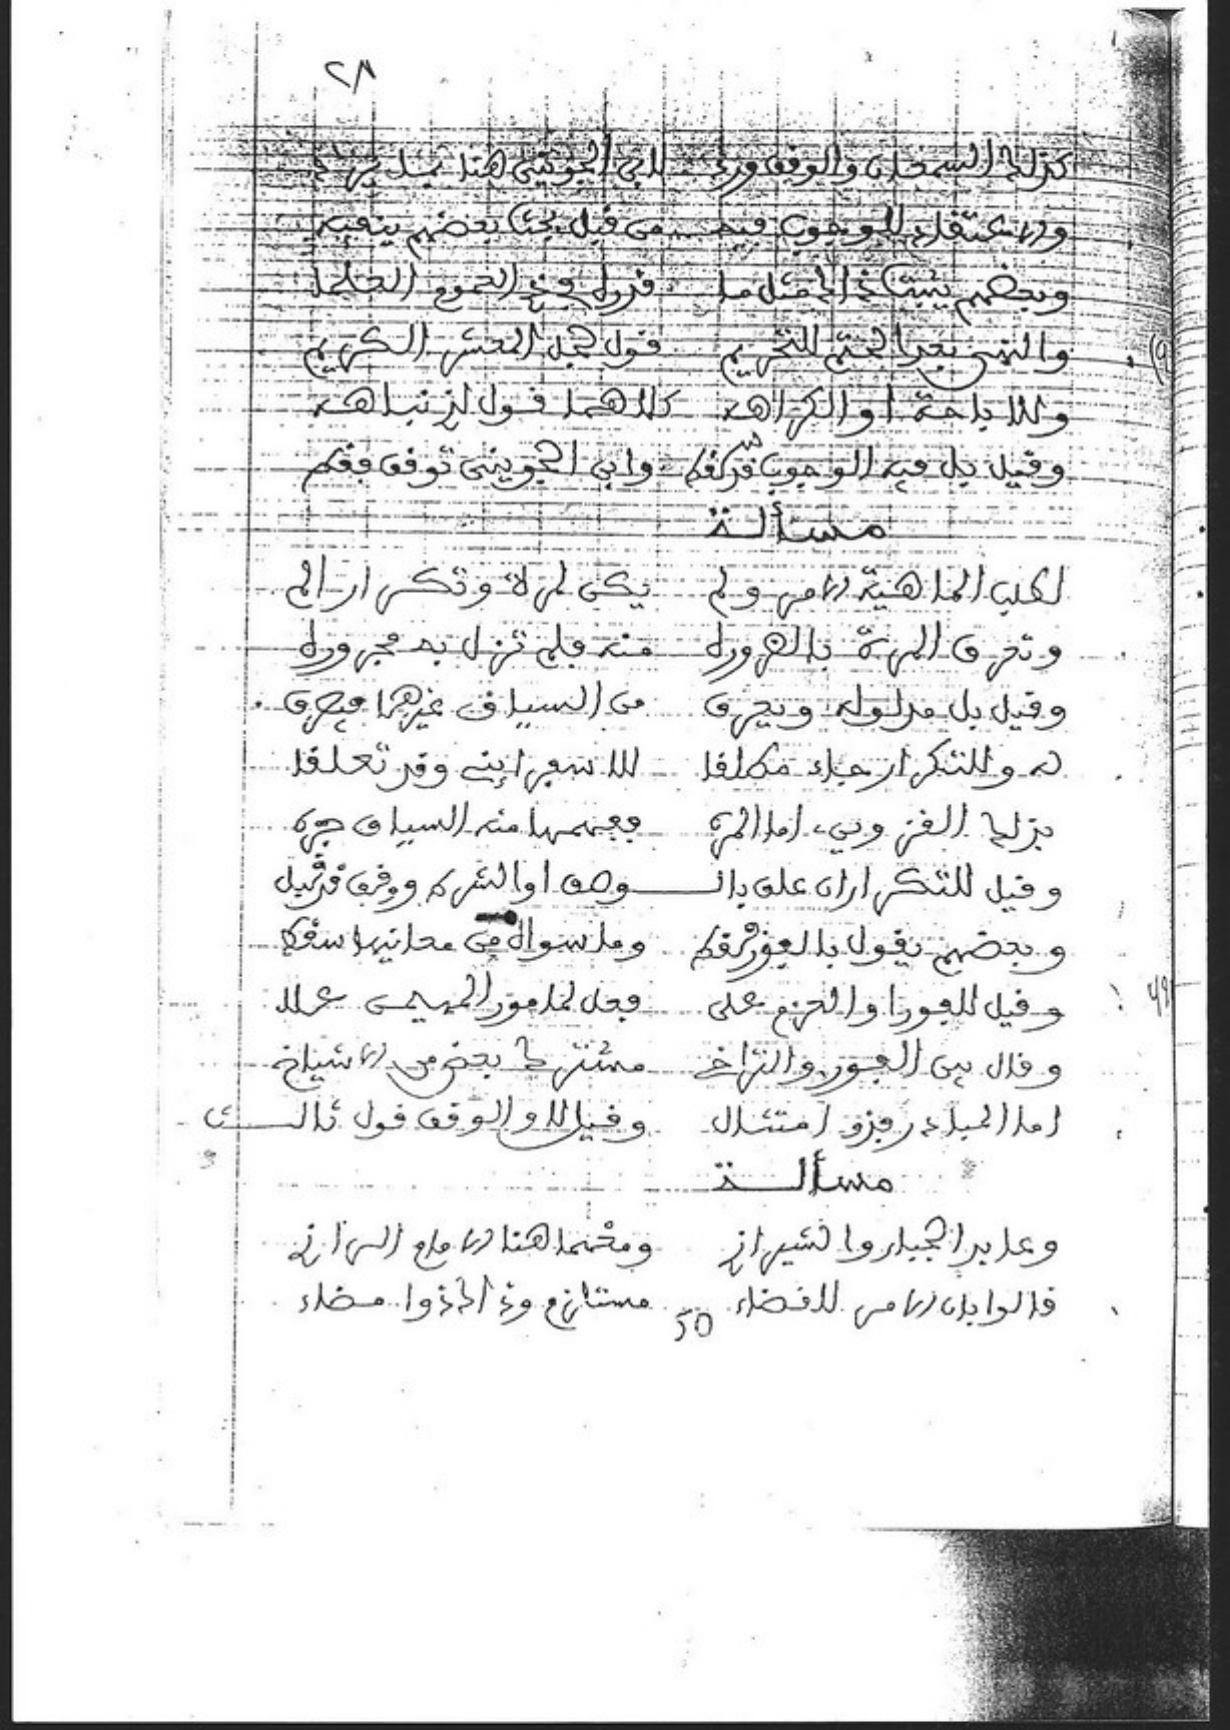 ٢٨
كذلك السمعان والوقف ورد لابن الجويني هنا
والاعتقاد للوجوب فيه من قبل بحث بعضهم ينفيه
وبعضهم مثل ما العموم العلما
والنهي بعد الحتم للتحريم قول لجل المعشر الكريم
وللاباحة او الكراهه كلاهما قول لذي نباهه
وقيل بل فيه الوجوب قد سقط وابن الجويني توقف فقط
مسألة
لطلب الماهية الامر ولم يكن لمرة وتكرار الم
وتعرف المرة بالضروره منه فلم تزل به مجروره
وقيل بل مدلوله ويصرف من السياق غيرها فيصرف
له وللتكرار جاء مطلقا للاسفرايني وقد تعلقا
بذلك القزويني اما المره ففهمها منه السياق جره
وقيل للتكرار ان علق بالـوصف او الشرط ووقف قد قبل
وبعضهم يقول بالفور فقط وما سواه من معانيها سقط
وقيل للفور او العزم على فعل لمامور المهيمن علا
وقال بين الفور والتراخي مشترك بعض من الاشياخ
اما المبادر فذو امتثال وقيل لا والوقف قول ثالث
مسألة
وعابد الجبار والشيرازي ومعهما هنا الامام الرازي
قالوا بان الامر للقضاء مستلزم وذا الذوا مضاء
50